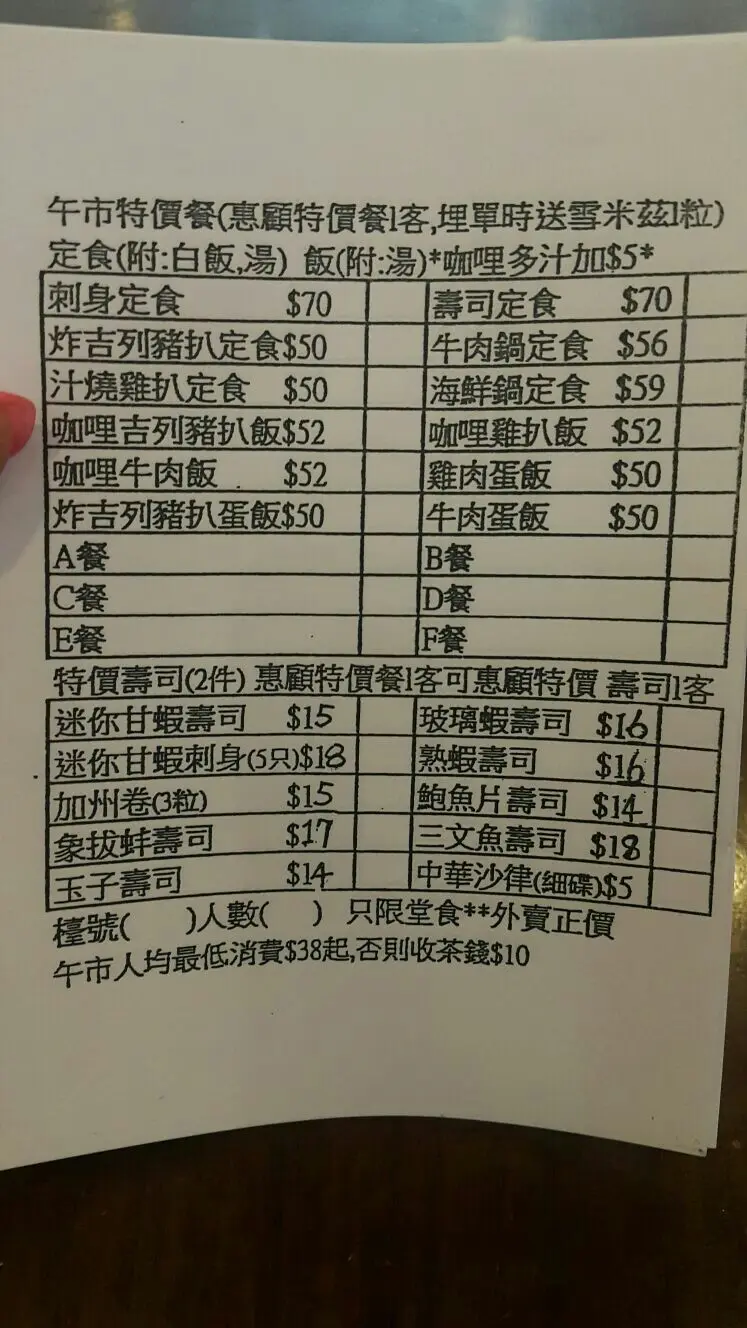 午市特價餐(惠顧特價餐1客,埋單時送雪米茲1粒)
定食(附:白飯,湯) 飯(附:湯)*咖哩多汁加$5*
刺身定食 $70 壽司定食 $70
炸吉列豬扒定食$50 牛肉鍋定食 $56
汁燒雞扒定食 $50 海鮮鍋定食 $59
咖哩吉列豬扒飯$52 咖哩雞扒飯 $52
咖哩牛肉飯 $52 雞肉蛋飯 $50
炸吉列豬扒蛋飯$50 牛肉蛋飯 $50
A餐 B餐
C餐 D餐
E餐 F餐
特價壽司(2件) 惠顧特價餐1客可惠顧特價 壽司1客
迷你甘蝦壽司 $15 玻璃蝦壽司 $16
迷你甘蝦刺身(5只)$18 熟蝦壽司 $16
加州卷(3粒) $15 鮑魚片壽司 $14
象拔蚌壽司 $17 三文魚壽司 $18
玉子壽司 $14 中華沙律(細碟)$5
檯號( )人數( ) 只限堂食**外賣正價
午市人均最低消費$38起,否則收茶錢$10